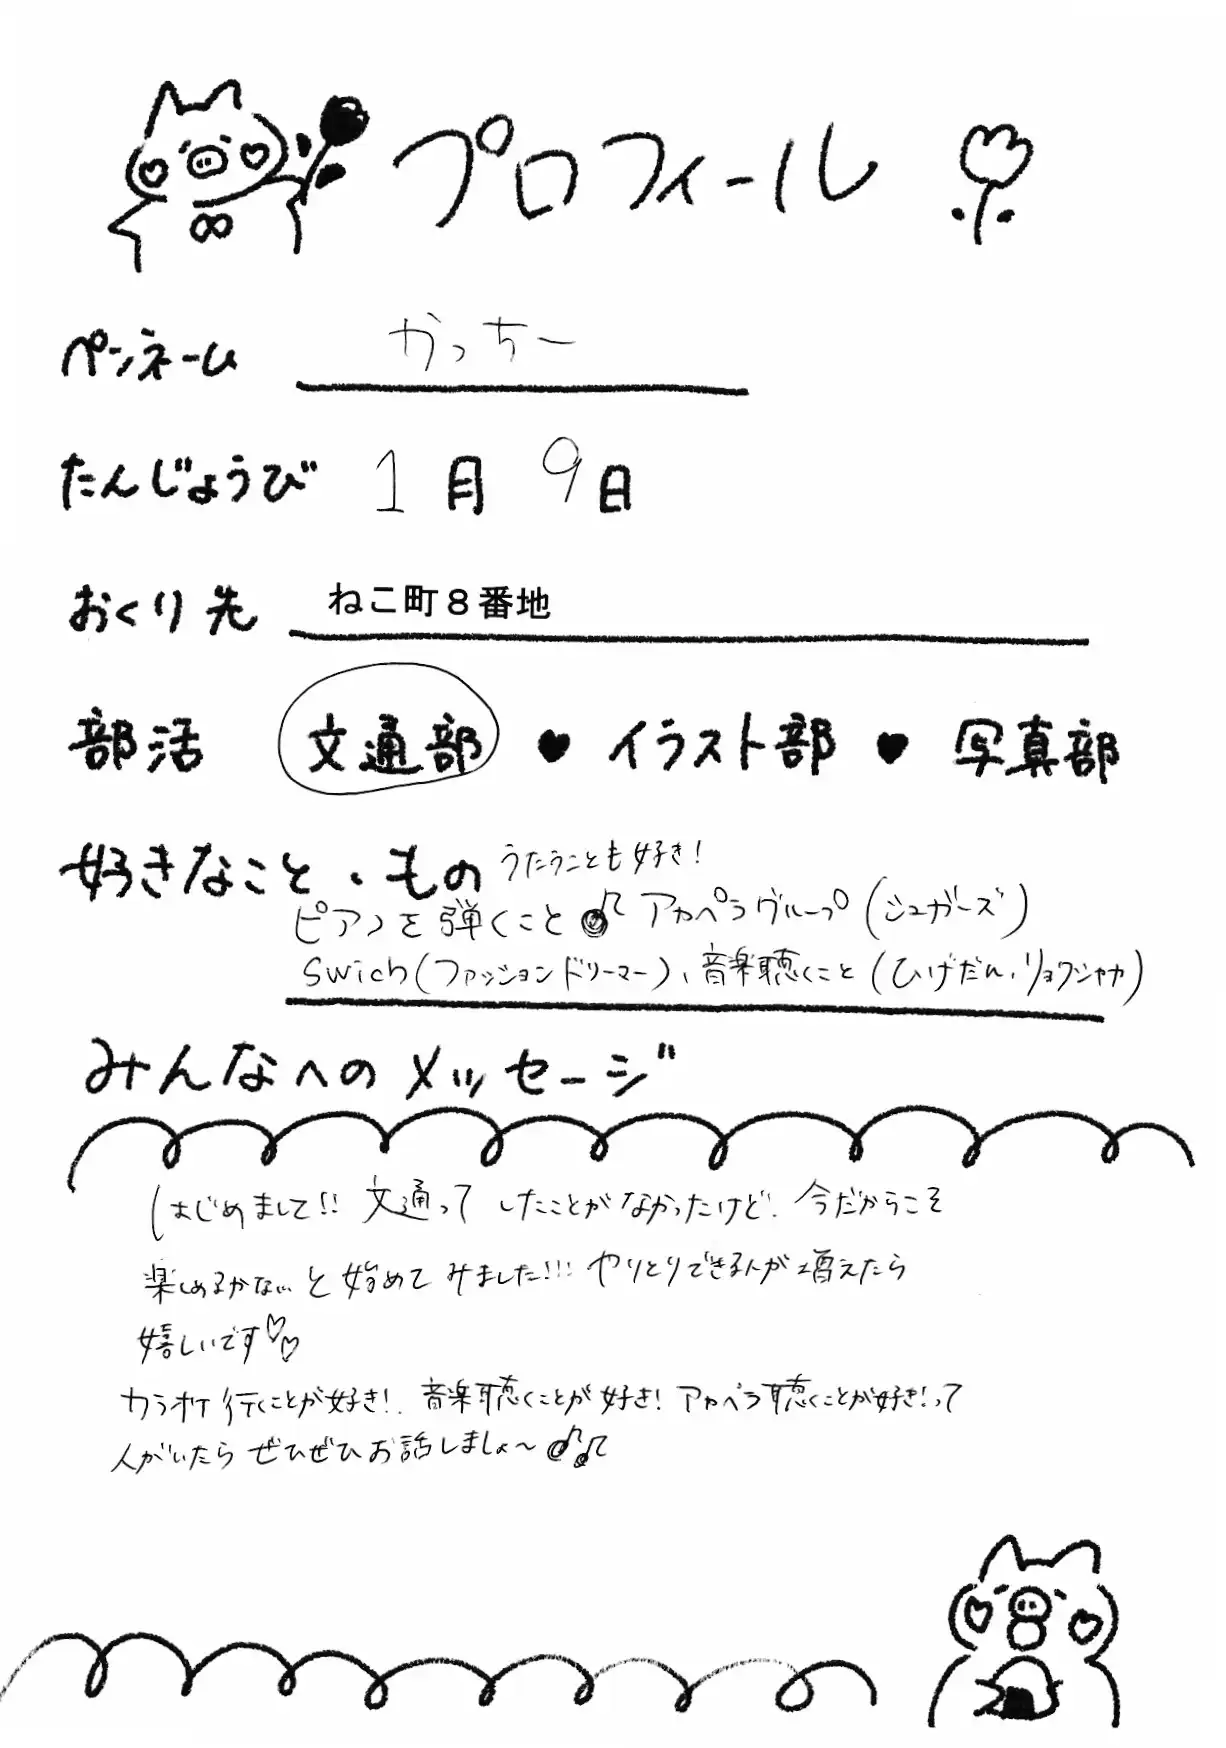 プロフィール
ペンネーム かっちー
たんじょうび 1月9日
おくり先 ねこ町8番地
部活 文通部♥イラスト部♥写真部
好きなこと・もの うたうことも好き!
ピアノを弾くこと♪アカペラグループ(シュガーズ)
Swich(ファッションドリーマー)、音楽聴くこと(ひげだん、リョクシャカ)
みんなへのメッセージ
はじめまして!! 文通ってしたことがなかったけど、今だからこそ
楽しめるかな…と始めてみました!!! やりとりできる人が増えたら
嬉しいです♡♡
カラオケ行くことが好き!、音楽聴くことが好き!アカペラ聴くことが好き!って
人がいたらぜひぜひお話しましょ〜♪♪